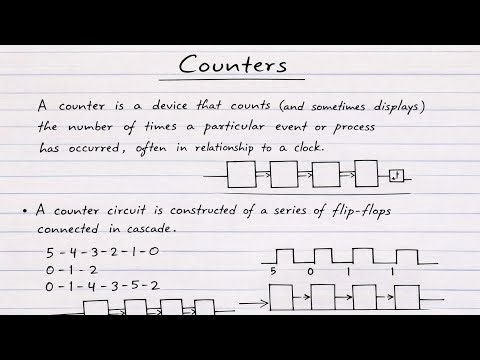 Counters
A counter is a device that counts (and sometimes displays)
the number of times a particular event or process
has occurred, often in relationship to a clock.
• A counter circuit is constructed of a series of flip-flops
connected in cascade.
5-4-3-2-1-0
0-1-2
0-1-4-3-5-2
5 0 1 1